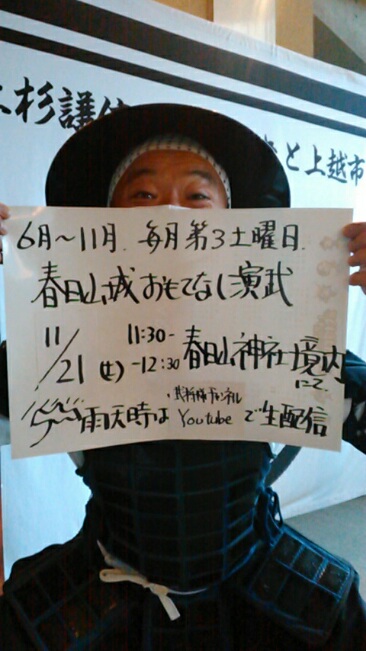 杉謙信
と上越市
6月〜11月 毎月第3土曜日
春日山城おもてなし演武
11/21(土) 11:30-
-12:30 春日山神社境内
にて
チャンネル
雨天時は Youtube で生配信